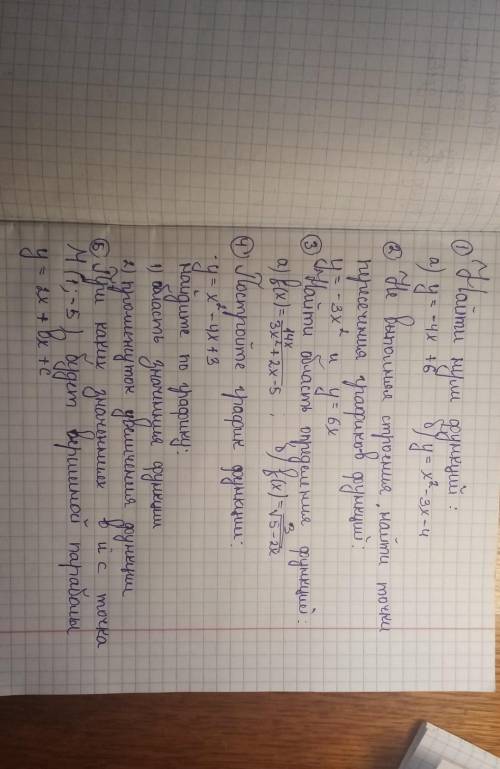 ① Найти нули функций:
а) y = -4x + 6   б) y = x² - 3x - 4
② Не выполняя строение, найти точки
пересечения графиков функций:
y = -3x² и y = 6x
③ Найти область определения функций:
а) f(x) = 14x / 3x² + 2x - 5 ; б) f(x) = 3 / √5 - 2x
④ Постройте график функции:
y = x² - 4x + 3
найдите по графику:
1) область значения функции
2) промежуток увеличения функции
⑤ При каких значениях b и c точка
M (1; -5) будет вершиной параболы
y = 2x + bx + c